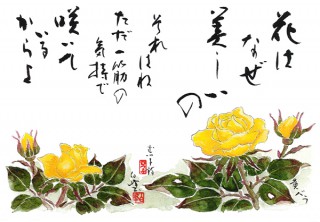 花は
なぜ
美しいの
それはね
ただ一筋の
気持で
咲いて
いる
からよ